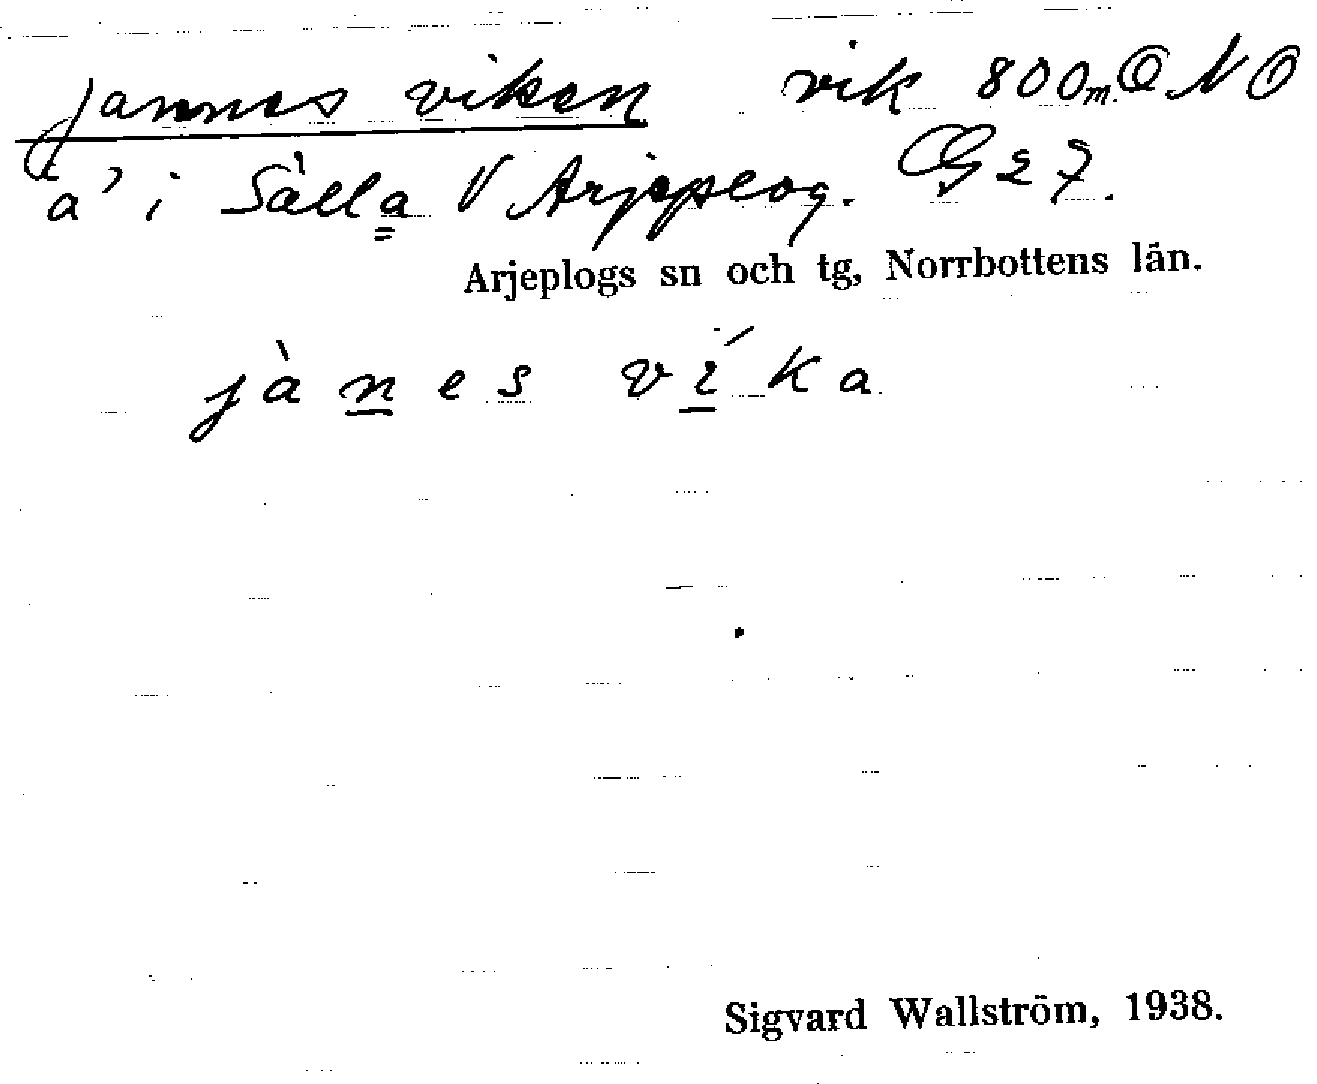 Jannes viken vik 800 m ONO
a' i Sälla V Arjeplog. G 27.
Arjeplogs sn och tg, Norrbottens län.
jànes víka
Sigvard Wallström, 1938.